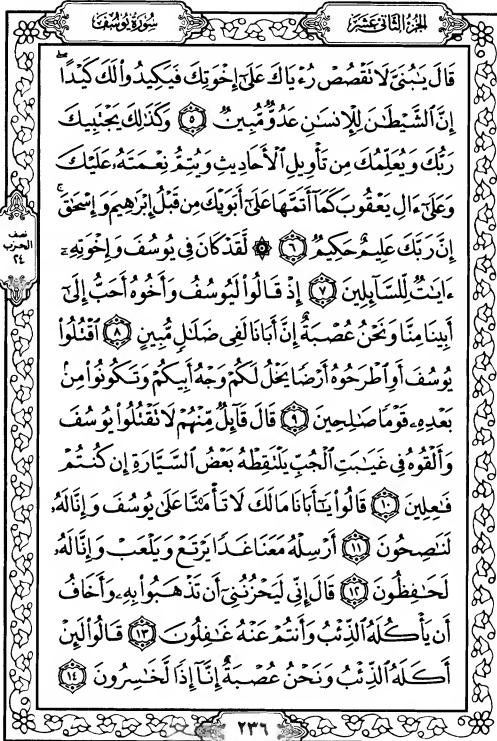 سورة يوسف
الجزء الثاني عشر
قَالَ يَٰبُنَىَّ لَا نَقۡصُصۡ رُءۡيَاكَ عَلَىٰٓ إِخۡوَتِكَ فَيَكِيدُواْ لَكَ كَيۡدًاۖ
إِنَّ ٱلشَّيۡطَٰنَ لِلۡإِنسَٰنِ عَدُوّٞ مُّبِينٞ ٥ وَكَذَٰلِكَ يَجۡتَبِيكَ
رَبُّكَ وَيُعَلِّمُكَ مِن تَأۡوِيلِ ٱلۡأَحَادِيثِ وَيُتِمُّ نِعۡمَتَهُۥ عَلَيۡكَ
وَعَلَىٰٓ ءَالِ يَعۡقُوبَ كَمَآ أَتَمَّهَا عَلَىٰٓ أَبَوَيۡكَ مِن قَبۡلُ إِبۡرَٰهِيمَ وَإِسۡحَٰقَۚ
إِنَّ رَبَّكَ عَلِيمٌ حَكِيمٞ ٦ ۞ لَّقَدۡ كَانَ فِي يُوسُفَ وَإِخۡوَتِهِۦٓ
ءَايَٰتٞ لِّلسَّآئِلِينَ ٧ إِذۡ قَالُواْ لَيُوسُفُ وَأَخُوهُ أَحَبُّ إِلَىٰٓ
أَبِينَا مِنَّا وَنَحۡنُ عُصۡبَةٌ إِنَّ أَبَانَا لَفِي ضَلَٰلٖ مُّبِينٍ ٨ ٱقۡتُلُواْ
يُوسُفَ أَوِ ٱطۡرَحُوهُ أَرۡضٗا يَخۡلُ لَكُمۡ وَجۡهُ أَبِيكُمۡ وَتَكُونُواْ مِنۢ
بَعۡدِهِۦ قَوۡمٗا صَٰلِحِينَ ٩ قَالَ قَآئِلٞ مِّنۡهُمۡ لَا تَقۡتُلُواْ يُوسُفَ
وَأَلۡقُوهُ فِي غَيَٰبَتِ ٱلۡجُبِّ يَلۡتَقِطۡهُ بَعۡضُ ٱلسَّيَّارَةِ إِن كُنتُمۡ
فَٰعِلِينَ ١٠ قَالُواْ يَٰٓأَبَانَا مَالَكَ لَا تَأۡمَ۬نَّا عَلَىٰ يُوسُفَ وَإِنَّا لَهُۥ
لَنَٰصِحُونَ ١١ أَرۡسِلۡهُ مَعَنَا غَدٗا يَرۡتَعۡ وَيَلۡعَبۡ وَإِنَّا لَهُۥ
لَحَٰفِظُونَ ١٢ قَالَ إِنِّي لَيَحۡزُنُنِيٓ أَن تَذۡهَبُواْ بِهِۦ وَأَخَافُ
أَن يَأۡكُلَهُ ٱلذِّئۡبُ وَأَنتُمۡ عَنۡهُ غَٰفِلُونَ ١٣ قَالُواْ لَئِنۡ
أَكَلَهُ ٱلذِّئۡبُ وَنَحۡنُ عُصۡبَةٌ إِنَّآ إِذٗا لَّخَٰسِرُونَ ١٤
نصف
الحزب
٢٤
٢٣٦